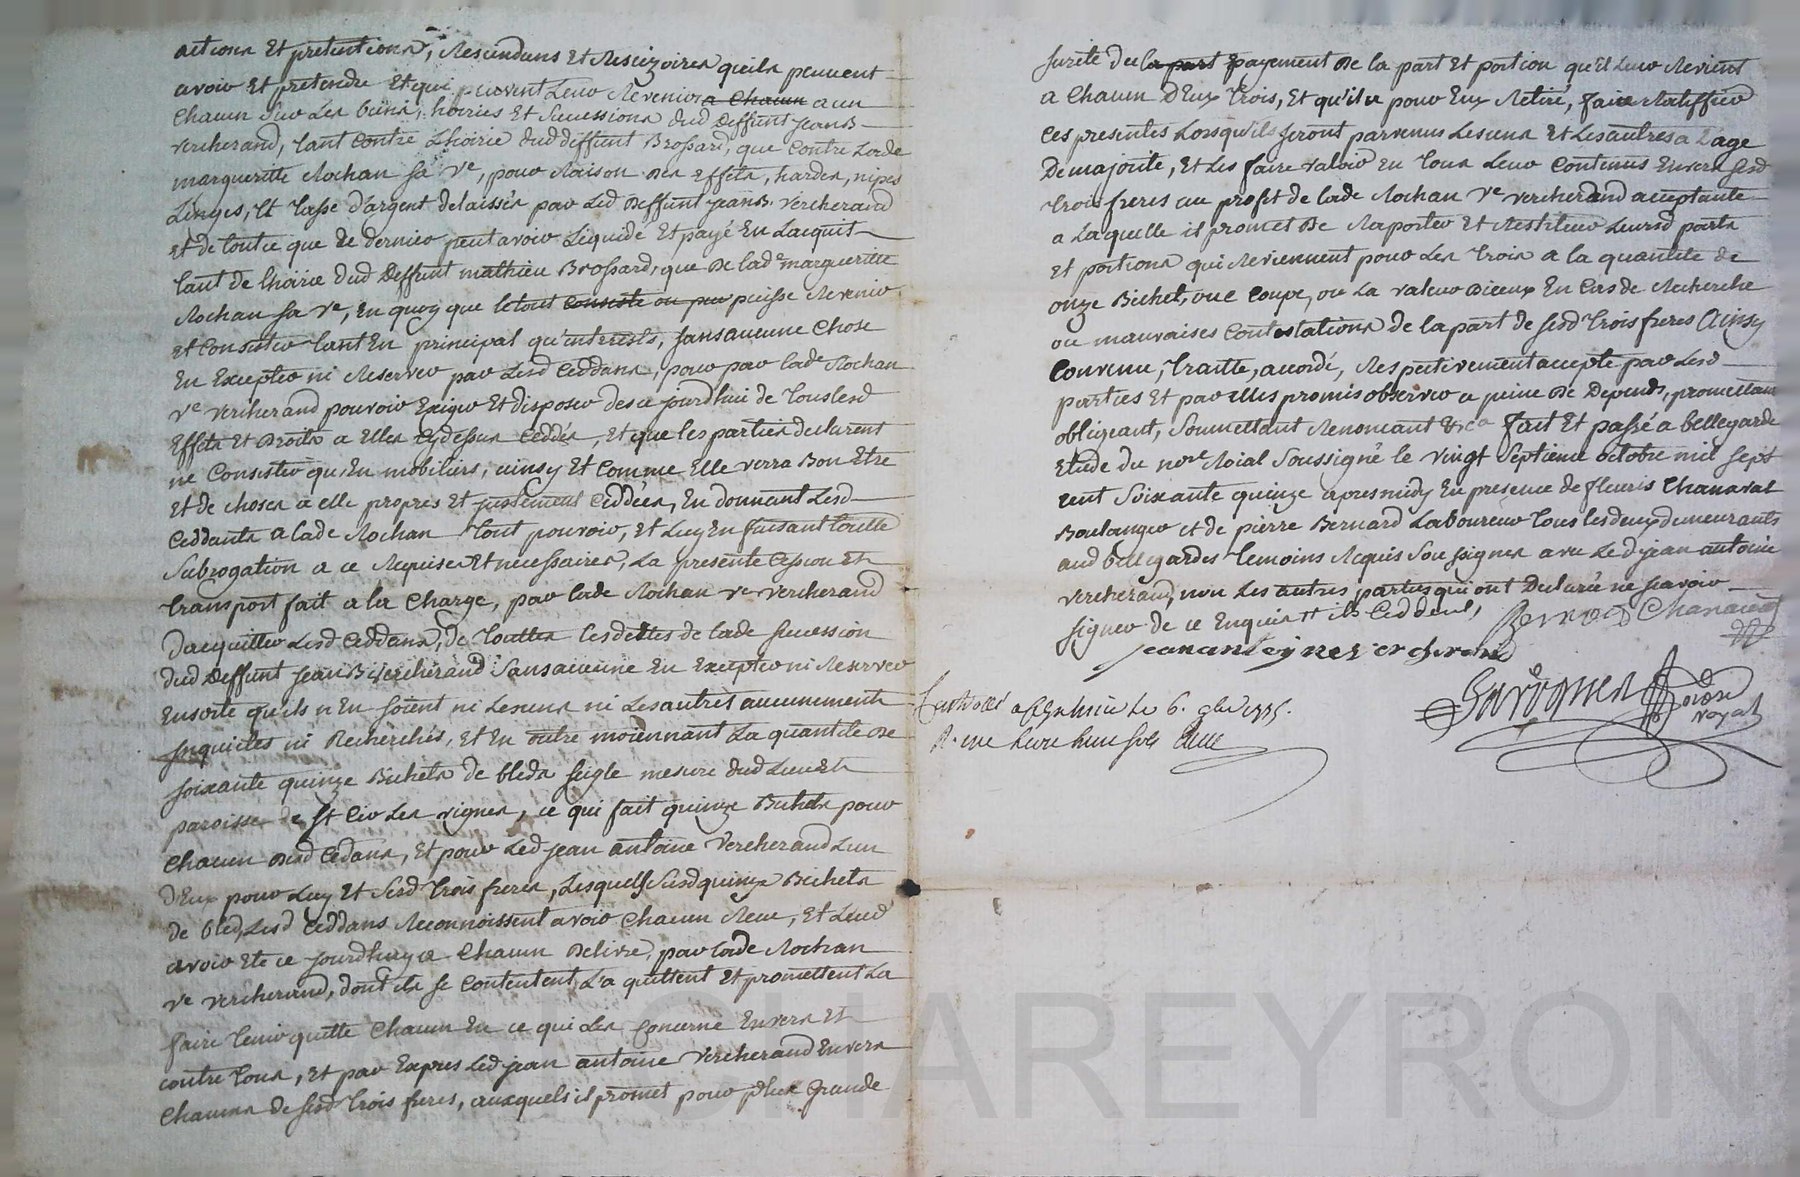 actions Et pretentions, Rescindans Et Rescizoires qu'ils peuvent
avoir Et pretendre Et qui peuvent Leur Revenir a Chacun a un
Chacun Sur Les biens, hoiries Et Sucessions dud Deffunt Jean B.
Vercherand, tant Contre Lhoirie dud deffunt Brossard, que Contre Lade
margueritte Rochan sa Ve, pour Raison des Effets, hardes, nipes
Linges, Et tasse d'argent delaissés par Led Deffunt Jean B. Vercherand
Et de tout ce que Ce dernier peut avoir Liquidé Et payé En Lacquit
tant de lhoirie dud Deffunt mathieu Brossard, que De lade margueritte
Rochan sa Ve, En quoy que le tout Consiste ou peu puisse Revenir
Et Consister tant En principal qu'interests, sans aucune Chose
En Excepter ni Reserver par Lesd Ceddans, pour par lade Rochan
Ve Vercherand pouvoir Exiger Et disposer des ce jourdhui de tous lesd
Effets Et Droits a Elles Cydessus Ceddés, Et que les parties declarent
ne Consister qu'En mobiliers, ainsy Et Comme Elle verra Bon Etre
Et de choses a elle propres Et justement Ceddées, En donnant Lesd
Ceddants a lade Rochan tout pouvoir, Et Luy En faisant toutte
Subrogation a ce Requises Et nécessaires, La presente Cession Et
transport fait a la Charge, par lade Rochan ve vercherand
Dacquitter Lesd Ceddans, de touttes les dettes de lade Sucession
Dud Deffunt Jean B. Vercherand Sans aucune En Excepter ni Reserver
Ensorte qu'ils n'En soient ni Lesuns ni Les autres aucunement
Inquietés ni Recherchés, Et En outre moiennant La quantité De
soixante quinze Bichets de bleds seigle mesure dud Lieu Et
paroisse de St Cir Les vignes, ce qui fait quinze Bichets pour
Chacun Desd Cedans, Et pour Led jean antoine Vercherand Lun
D'Eux pour Luy Et Sesd trois freres, Lesquels Susd quinze Bichets
de bled Lesd Ceddans Reconnoissent avoir Chacun Recu, Et Leur
avoir Eté ce jourdhuy a Chacun Delivré, par lade Rochan
ve vercherand, dont ils se Contentent, L'a quittent Et promettent La
faire tenir quitte Chacun En ce qui Les Concerne Envers Et
contre tous, Et par Exprès Led jean antoine Vercherand Envers
Chacuns de sesd trois freres, auxquels il promet pour plus Grande
sureté de la part payement De la part Et portion qu'il Leur Revient
a Chacun D'Eux trois, Et qu'il a pour Eux Retiré, faire Ratiffier
Ces presentes Lorsqu'ils seront parvenus Lesuns Et Les autres a L'age
De majorité, Et Les faire valoir En tous Leur Contenus Envers sesd
trois freres au profit de lade Rochan Ve Vercherand acceptante
a Laquelle il promet De Raporter Et Restituer Leursd parts
Et portions qui Reviennent pour Les trois a la quantité de
onze Bichets, une Coupe, ou La valeur Diceux En Cas de Recherche
ou mauvaises Contestations de la part de sesd trois freres Ainsy
Convenu, traitté, accordé, Respectivement accepté par Lesd
parties Et par elles promis observer a peine De Depends, promettant
obligeant, Soumettant Renoncant &ca Fait Et passé a bellegarde
Etude du nore Roial Soussigné le vingt Septieme octobre mil sept
cent Soixante quinze apres midy En presence de fleuris Chanavat
Boulanger et de pierre Bernard Laboureur tous les deux demeurants
aud bellegardes temoins Requis Soussignés avec Led jean antoine
vercherand, non Les autres parties qui ont Declaré ne scavoir
signer de ce Enquis tt ils Ceddent,
Bernard Chanavat
jean anteine vercherand
Controllé a le 6. 9bre 1775.
R. une livre huit sols
nore
royal
CHAREYRON